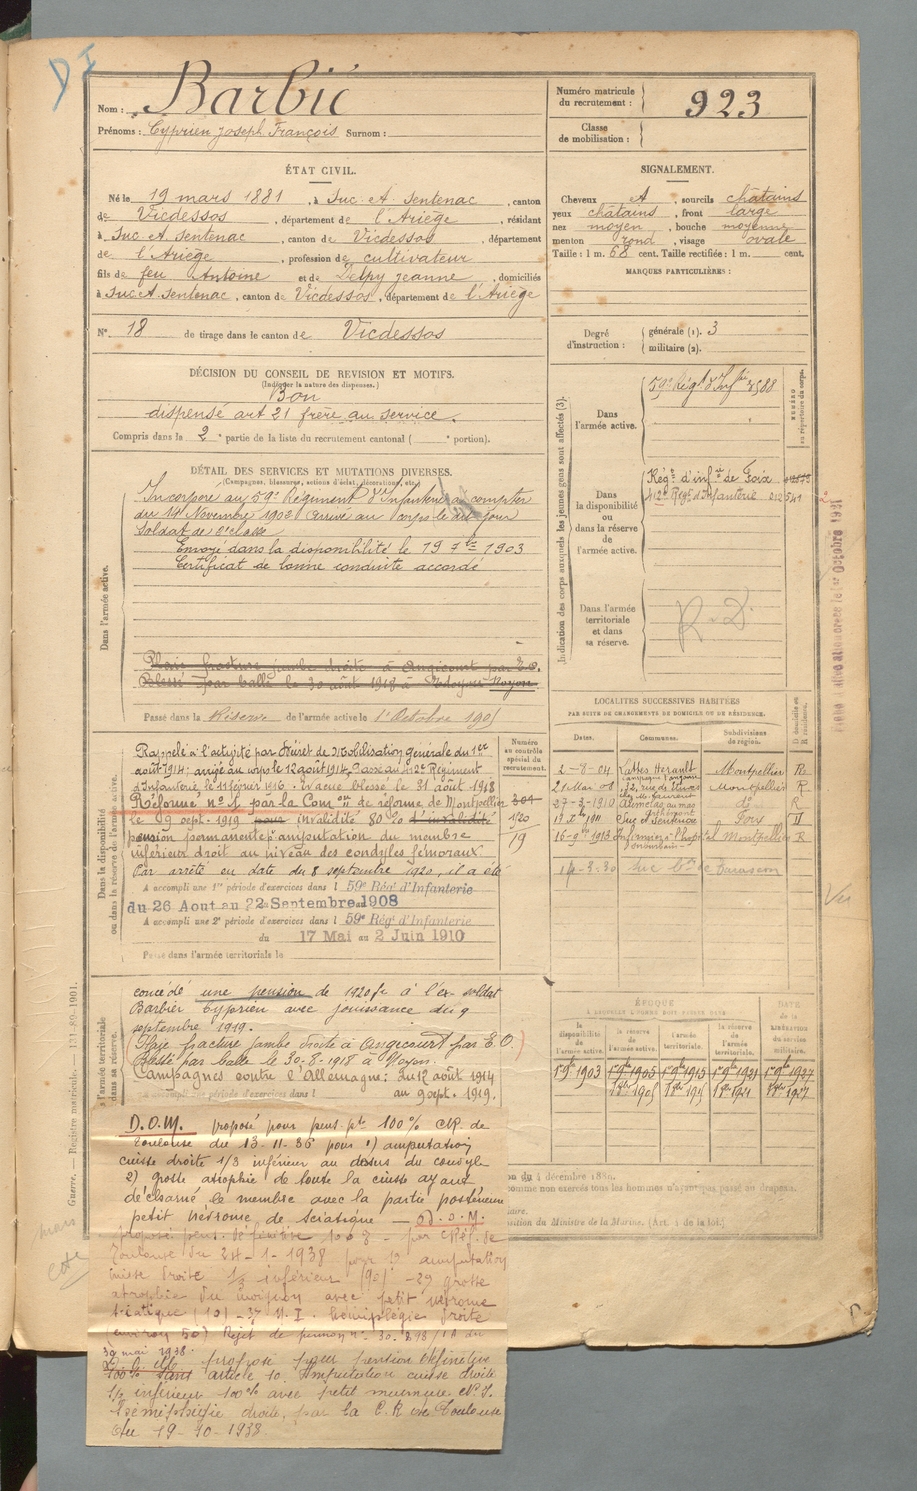 Nom : Barbié
Prénoms : Cyprien Joseph François Surnom :
Numéro matricule du recrutement : 923
Classe de mobilisation :
ÉTAT CIVIL.
Né le 19 mars 1881, à Suc et Sentenac, canton
de Vicdessos, département de l'Ariège, résidant
à Suc et Sentenac, canton de Vicdessos, département
de l'Ariège, profession de cultivateur
fils de feu Antoine et de Delpy Jeanne, domiciliés
à Suc et Sentenac, canton de Vicdessos, département de l'Ariège
N° 18 de tirage dans le canton de Vicdessos
SIGNALEMENT.
Cheveux et, sourcils châtains
yeux châtains, front large
nez moyen, bouche moyenne
menton rond, visage ovale
Taille : 1 m. 68 cent. Taille rectifiée : 1 m. cent.
MARQUES PARTICULIÈRES :
Degré d'instruction : générale (1). 3
militaire (2).
DÉCISION DU CONSEIL DE REVISION ET MOTIFS.
(Indiquer la nature des dispenses.)
Bon
dispensé art 21 frère au service.
Compris dans la 2e partie de la liste du recrutement cantonal ( e portion).
DÉTAIL DES SERVICES ET MUTATIONS DIVERSES.
(Campagnes, blessures, actions d'éclat, décorations, etc.)
Dans l'armée active.
Incorporé au 59e Régiment d'Infanterie à compter
du 14 Novembre 1902 Arrivé au corps le dit jour
Soldat de 2e classe
Envoyé dans la disponibilité le 19 7bre 1903
Certificat de bonne conduite accordé
Plaie fracture jambe droite à Angicourt par E.O.
Blessé par balle le 30 août 1918 à Noyon
Passé dans la Réserve de l'armée active le 1er Octobre 1905
Indication des corps auxquels les jeunes gens sont affectés (3).
NUMÉRO au répertoire du corps.
Dans l'armée active. 59e Régt d'Infrie 3588
Dans la disponibilité ou dans la réserve de l'armée active.
Régt d'infrie de Foix
Régt d'Infanterie 012541
Dans l'armée territoriale et dans sa réserve.
LOCALITÉS SUCCESSIVES HABITÉES
PAR SUITE DE CHANGEMENTS DE DOMICILE OU DE RÉSIDENCE.
Dates. Communes. Subdivisions de région. D domicile ou R résidence.
2-8-04 Lattes Hérault Montpellier R
21 Mai 08 Montpellier R
27-3-1910 do R
1911 Suc et Sentenac Foix D
16-9 1913 Montpellier R
14-3-30
Dans la disponibilité ou dans la réserve de l'armée active.
Numéro au contrôle spécial du recrutement.
Rappelé à l'activité par Décret de Mobilisation Générale du 1er
août 1914; arrivé au corps le 12 août 1914, Passé au 12e Régiment
d'Infanterie, le 11 février 1916. Evacué blessé le 31 août 1918
Réformé n° 1, par la Comon de réforme de Montpellier
le 9 sept. 1919 pour invalidité 80 %
pension permanente pr amputation du membre
inférieur droit au niveau des condyles fémoraux
Par arrêté en date du 8 septembre 1920, il a été
1920
19
A accompli une 1re période d'exercices dans l 59e Rég' d'Infanterie
du 26 Aout au 22 Septembre 1908
A accompli une 2e période d'exercices dans l 59e Rég' d'Infanterie
du 17 Mai au 2 Juin 1910
Passé dans l'armée territoriale le
concédé une pension de 1920 fr à l'ex-soldat
Barbier Cyprien avec jouissance du 9
septembre 1919.
Plaie fracture jambe droite à Angicourt par E.O.
Blessé par balle le 30-8-1918 à Noyon.
Campagnes contre l'Allemagne: du 12 août 1914
au 9 sept. 1919.
ÉPOQUE
DATE de la LIBÉRATION du service militaire.
la disponibilité de l'armée active. la réserve de l'armée active. l'armée territoriale. la réserve de l'armée territoriale.
D.O.M. proposé pour pens. pte 100% C.R. de
Toulouse du 13-11-36 pour 1) amputation
cuisse droite 1/3 inférieur au dessus du condyle
2) grosse atrophie de toute la cuisse ayant
décharné le membre avec la partie postérieure
petit névrome de sciatique — D.O.M.
Toulouse du 24-1-1938 pour 1° amputation
cuisse droite 1/3 inférieur -2° grosse
atrophie du moignon avec petit névrome
hémiplégie droite
30 mai 1938
proposé pour pension définitive
100% article 10 Amputation cuisse droite
1/3 inférieur 100% avec petit
hémiplégie droite, par la C.R. de Toulouse
du 19-10-1938.
du 4 décembre 1889.
comme non exercés tous les hommes n'ayant pas passé au drapeau.
du Ministre de la Marine. (Art. 4 de la loi.)
Guerre. — Registre matricule. — 131-89-1901.
Vu